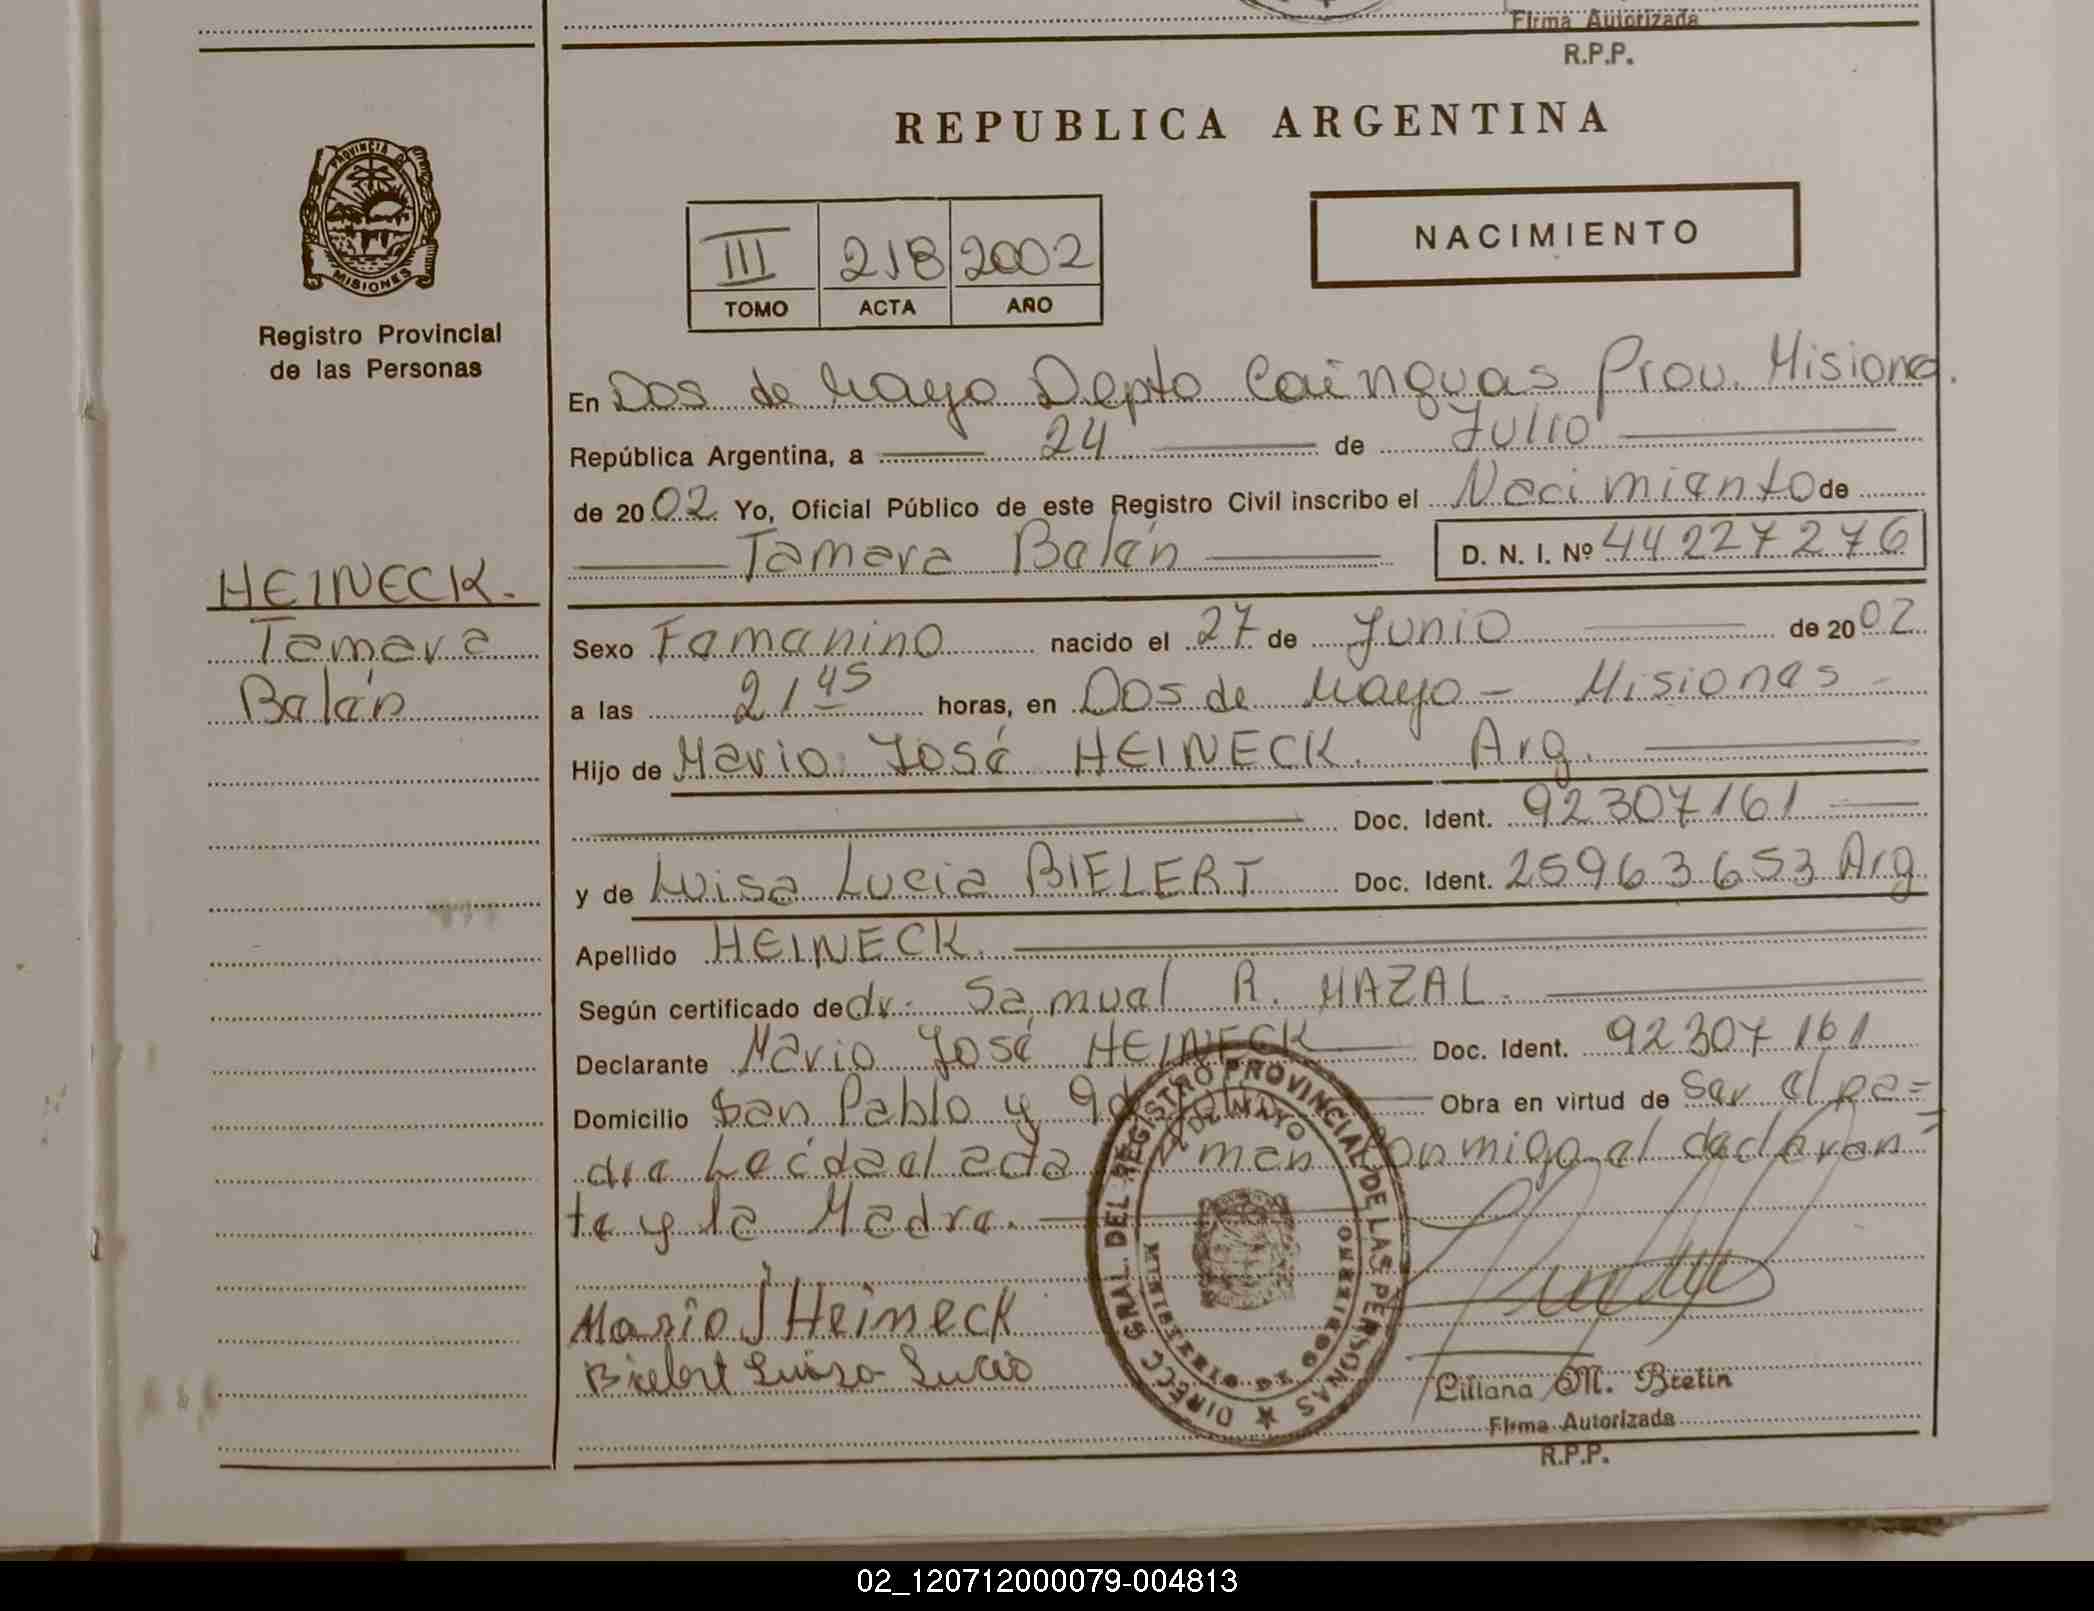 Firma Autorizada
R.P.P.
REPUBLICA ARGENTINA
PROVINCIA D
MISIONES
Registro Provincial
de las Personas
III 218 2002
TOMO ACTA AÑO
NACIMIENTO
En Dos de Mayo Depto Cainguas Prov. Misiones.
República Argentina, a 24 de Julio
de 2002 Yo, Oficial Público de este Registro Civil inscribo el Nacimiento de
Tamara Belén D. N. I. Nº 44227276
HEINECK.
Tamara
Belén
Sexo Femenino nacido el 27 de Junio de 2002
a las 21 45 horas, en Dos de Mayo - Misiones -
Hijo de Mario José HEINECK. Arg.
Doc. Ident. 92307161
y de Luisa Lucia BIELERT Doc. Ident. 25963653 Arg
Apellido HEINECK.
Según certificado de dr. Samuel R. MAZAL.
Declarante Mario José HEINECK Doc. Ident. 92307161
Domicilio San Pablo y Obra en virtud de Ser el pa=
dre Leida el acta conmigo el declaran=
te y la Madre.
Mario J Heineck
Bielert Luisa Lucia
DIRECC GRAL. DEL REGISTRO PROVINCIAL DE LAS PERSONAS
2 DE MAYO
MINISTERIO DE GOBIERNO
Liliana M. Bretin
Firma Autorizada
R.P.P.
02_120712000079-004813